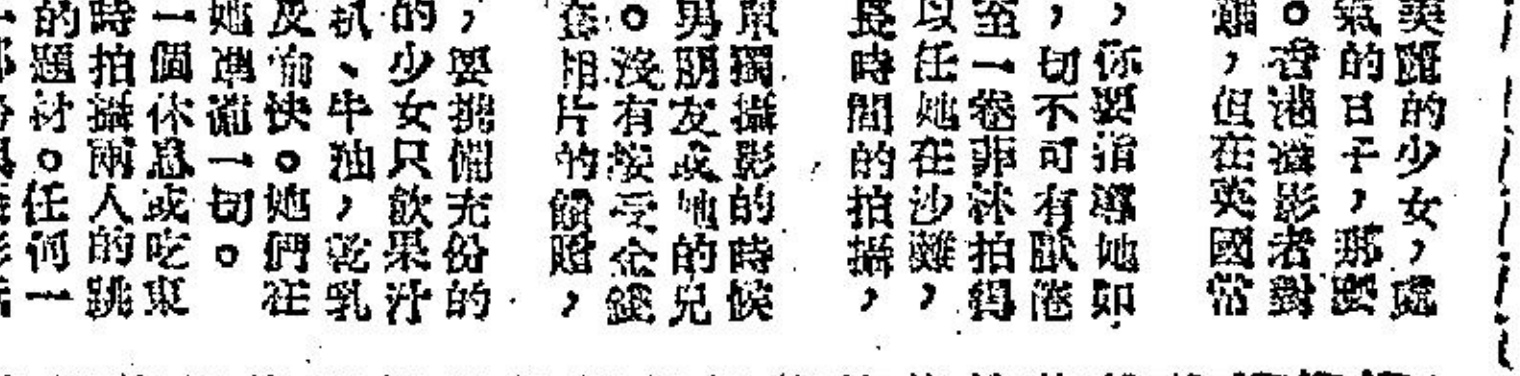 美麗的少女，處
氣的日子，那麼
。香港攝影者對
，但在英國常
，你要指導她如
，切不可有厭倦
至一卷菲林拍得
以任她在沙灘，
長時間的拍攝，
單獨攝影的時候
男朋友或她的兄
。沒有接受金錢
在相片的餽贈，
，要挑備充份的
的少女只飲果汁
、牛油，乾乳
及愉快。她們在
她準備一切。
一個休息或吃東
時拍攝兩人的跳
的題材。任何一